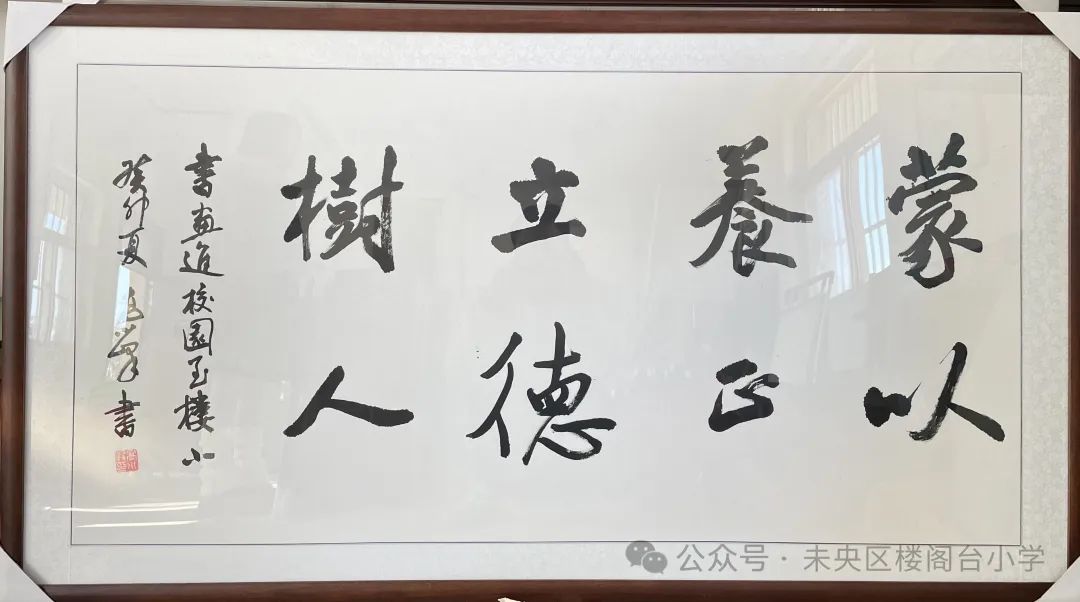 蒙以
養正
立德
樹人
書画進校園至楼小
癸卯夏 書
公众号 · 未央区楼阁台小学